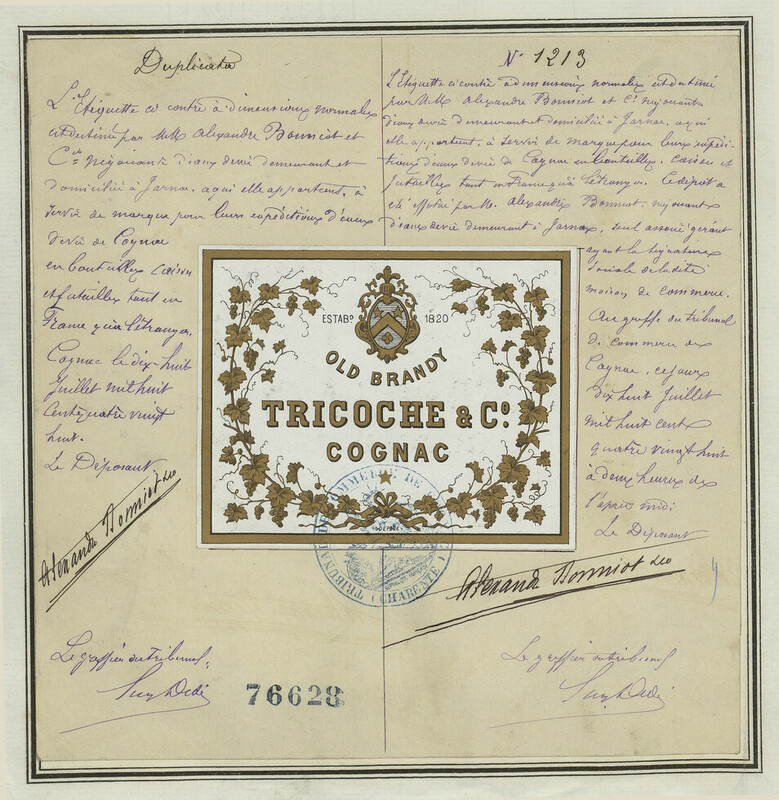 Duplicata
L'Etiquette ci contre à dimensions normales
est destiné par MM Alexandre Bonniot et
Cie négociants d'eaux devie demeurant et
domiciliés à Jarnac, a qui elle appartient, à
servir de marque pour leurs expéditions d'eaux
devie de Cognac
en bouteilles caisses
et futailles tant en
France qu'à l'étranger.
Cognac le dix huit
Juillet mil huit
cent quatre vingt
huit.
Le Déposant
Alexandre Bonniot &co
Le greffier du tribunal,
76628
N° 1213
L'Etiquette ci contre à dimensions normales est destiné
par MM Alexandre Bonniot et Cie négociants
d'eaux devie demeurant et domiciliés à Jarnac, a qui
elle appartient, à servir de marque pour leurs expédi-
tions d'eaux devie de Cognac en bouteilles, caisses et
futailles tant en France qu'à l'étranger. Ce dépot a
été effectué par M. Alexandre Bonniot, négociant
d'eaux devie demeurant à Jarnac, seul associé gérant
ayant la signature
sociale de la dite
maison de commerce.
Au greffe du tribunal
de commerce de
Cognac, ce jour
dix huit Juillet
mil huit cent
quatre vingt huit
à deux heures de
l'après midi
Le Déposant
Alexandre Bonniot &co
Le greffier du tribunal
ESTABD. 1820
OLD BRANDY
TRICOCHE & Co.
COGNAC
DÉPOSÉ
TRIBUNAL DE COMMERCE DE
(CHARENTE)